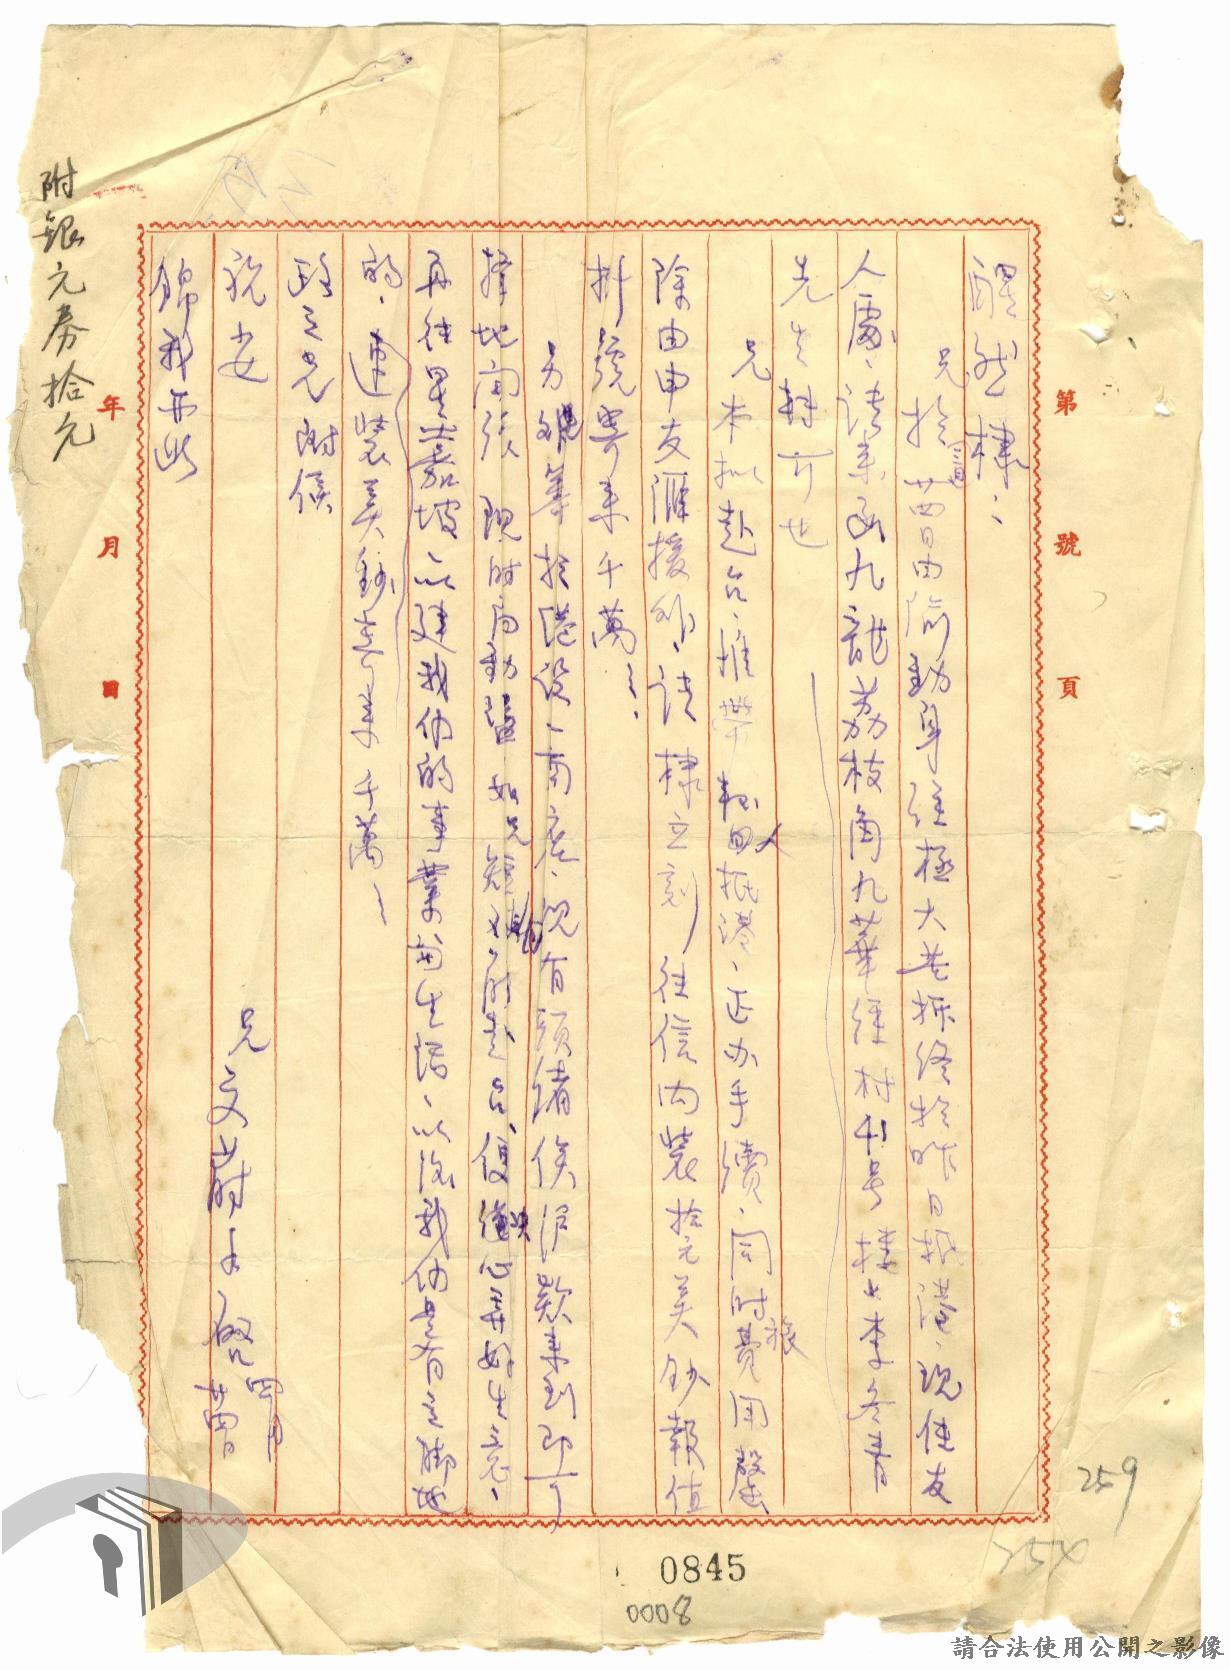 第 號 頁
醒然棣、
兄於廿四日由渝動身經極大苦楚終於昨日抵港、現住友
人處、請來函九龍荔枝角九華徑村41号樓上李冬青
先生轉可也
兄本擬赴台、携帶人抵港、正办手續、同時旅費用罄
除由申友滙接外、請棣立刻往信內裝拾元美鈔報值
掛號寄來千萬、
另於港設一商店、現有頭緒俟滬款來到即可
擇地開張 現時局動盪如兄短期不能赴台、便決心再好生意、
再往星嘉坡、以建我们的事業與生活、以後我们是有立腳地
的、速裝美鈔寄來千萬、
兄附候
祝安
錦我弟此
兄 文 手啓 四月廿四日
年 月 日
附銀元券拾元
259
254
0845
0008
請合法使用公開之影像